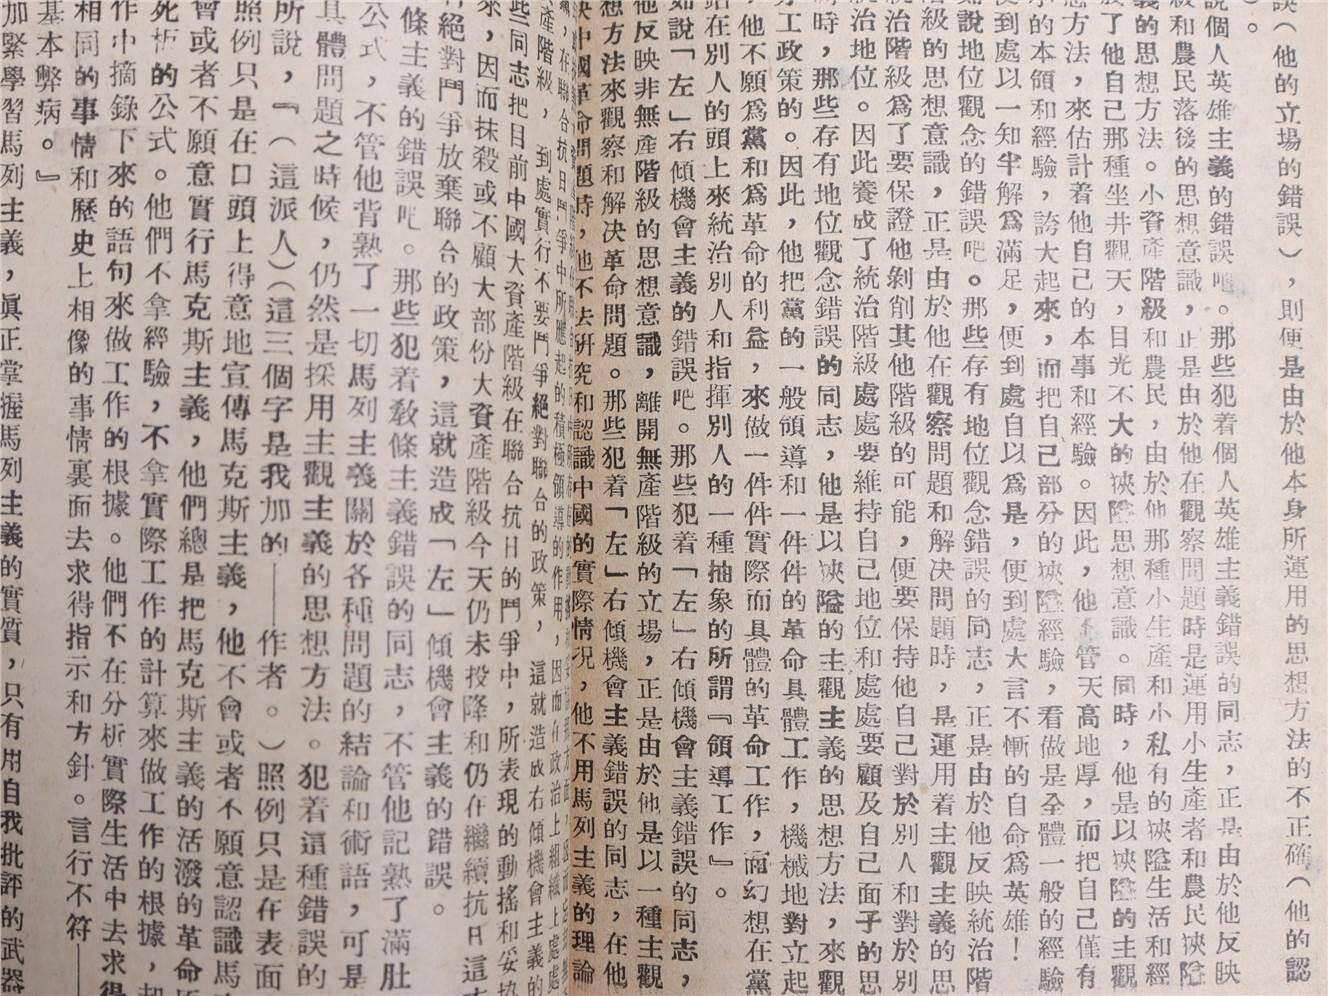 誤（他的立場的錯誤），則便是由於他本身所運用的思想方法的不正確（他的認
）。
說個人英雄主義的錯誤吧。那些犯着個人英雄主義錯誤的同志，正是由於他反映
級和農民落後的思想意識，正是由於他在觀察問題時是運用小生產者和農民狹隘
義的思想方法。小資產階級和農民，由於他那種小生產和小私有的狹隘生活和經
了他自己那種坐井觀天，目光不大的狹隘思想意識。同時，他是以狹隘的主觀
想方法，來估計着他自己的本事和經驗。因此，他不管天高地厚，而把自己僅有
的本領和經驗，誇大起來，而把自己部分的狹隘經驗，看做是全體一般的經驗
便到處以一知半解爲滿足，便到處自以爲是，便到處大言不慚的自命爲英雄！
如說地位觀念的錯誤吧。那些存有地位觀念錯誤的同志，正是由於他反映統治階
級的思想意識，正是由於他在觀察問題和解决問題時，是運用着主觀主義的思
統治階級爲了要保證他剝削其他階級的可能，便要保持他自己對於別人和對於別
統治地位。因此養成了統治階級處處要維持自己地位和處處要顧及自己面子的思
時，那些存有地位觀念錯誤的同志，他是以狹隘的主觀主義的思想方法，來觀
工政策的。因此，他把黨的一般領導和一件件的革命具體工作，機械地對立起
他不願爲黨和爲革命的利益，來做一件件實際而具體的革命工作，而幻想在黨
站在別人的頭上來統治別人和指揮別人的一種抽象的所謂『領導工作』。
如說「左」右傾機會主義的錯誤吧。那些犯着「左」右傾機會主義錯誤的同志，
他反映非無產階級的思想意識，離開無產階級的立場，正是由於他是以一種主觀
想方法來觀察和解决革命問題。那些犯着「左」右傾機會主義錯誤的同志，在他
决中國革命問題時，他不去研究和認識中國的實際情况，他不用馬列主義的理論
，在聯合抗日鬥爭中所應起的積極領導的作用，因而在政治上組織上處處
產階級，到處實行不要鬥爭絕對聯合的政策，這就造成右傾機會主義的
些同志把目前中國大資產階級在聯合抗日的鬥爭中，所表現的動搖和妥協
來，因而抹殺或不顧大部份大資產階級今天仍未投降和仍在繼續抗日這
絕對鬥爭放棄聯合的政策，這就造成「左」傾機會主義的錯誤。
條主義的錯誤吧。那些犯着教條主義錯誤的同志，不管他記熟了滿肚
公式，不管他背熟了一切馬列主義關於各種問題的結論和術語，可是
具體問題之時候，仍然是採用主觀主義的思想方法。犯着這種錯誤的
所說，『（這派人）（這三個字是我加的——作者。）照例只是在表面
照例只是在口頭上得意地宣傳馬克斯主義，他不會或者不願意認識馬
會或者不願意實行馬克斯主義，他們總是把馬克斯主義的活潑的革命
死板的公式。他們不拿經驗，不拿實際工作的計算來做工作的根據，
作中摘錄下來的語句來做工作的根據。他們不在分析實際生活中去求得
相同的事情和歷史上相像的事情裏面去求得指示和方針。言行不符——
基本弊病。』
加緊學習馬列主義，眞正掌握馬列主義的實質，只有用自我批評的武器